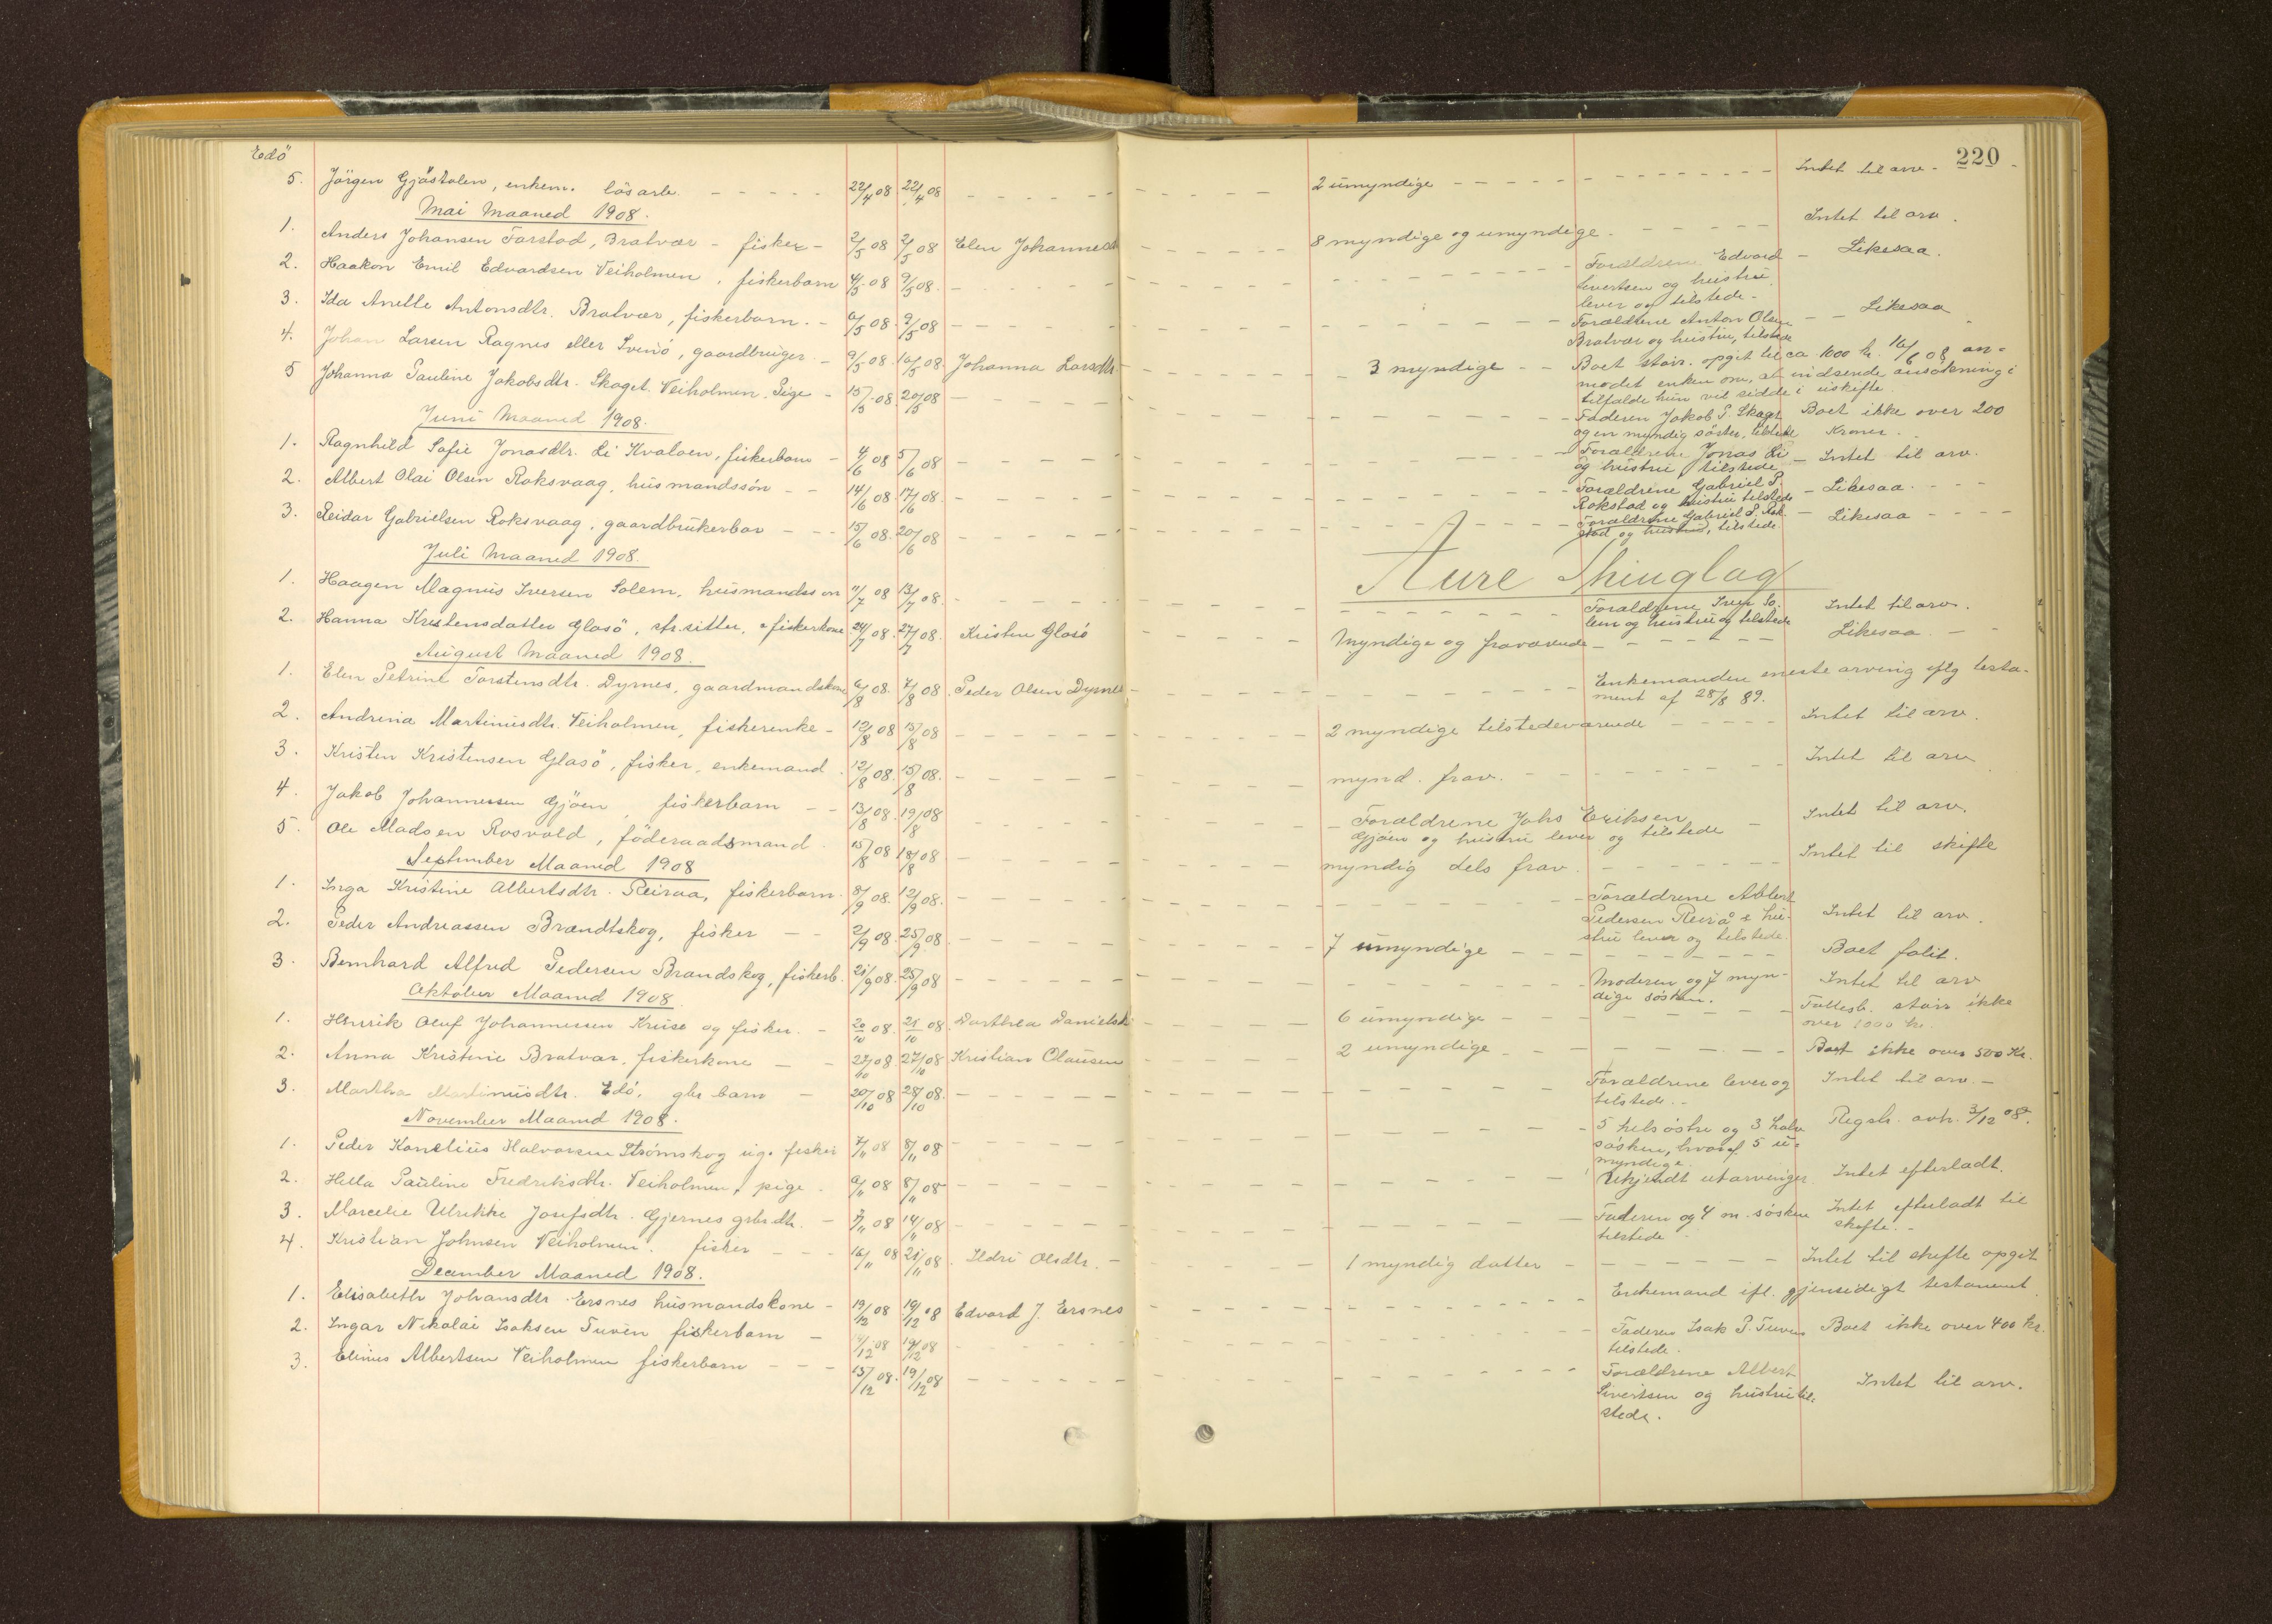 Edö
220
5. Jörgen Gjöstolen, enkem. lösarb. 22/4 08 22/4 08 2 umyndige Intet til arv.
Mai Maaned 1908.
1. Anders Johansen Forstad, Bratvær - fisker - 2/5 08 2/5 08 Elen Johannesd 8 myndige og umyndige. Intet til arv.
2. Haakon Emil Edvardsen Veiholmen, fiskerbarn 4/5 08 9/5 08. Forældrene Edvard Likesaa.
Sivertsen og hustru
lever og tilstede.
3. Ida Anette Antonsdtr. Bratvær, fiskerbarn. 6/5 08. 9/5 08 Forældrene Anton Olsen Likesaa
Bratvær og hustru, tilstede
4. Johan Larsen Ragnes eller Svinö, gaardbruger 9/5 08. 16/5 08. Johanna Larsdtr 3 myndige Boet stair. opgit til ca 1000 kr. 16/6 08 an-
modet enken om, at indsende ansökning i
tilfælde hun vil sidde i uskifte.
5 Johanna Pauline Jakobsdtr. Skaget. Veiholmen. Pige 15/5 08. 20/5 08 Faderen Jakob P. Skaget Boet ikke over 200
og en myndig söster, tilstede Kroner.
Juni Maaned 1908.
1. Ragnhild Sofie Jonasdtr. Li Kvaloen, fiskerbarn 4/6 08 5/6 08 Forældrene Jonas Li Intet til arv.
og hustru tilstede
2. Albert Olai Olsen Roksvaag, husmandssön 14/6 08. 17/6 08. Forældrene Gabriel P. Likesaa.
Rokstad og hustru tilstede
3. Reidar Gabrielsen Roksvaag, gaardbrukerbar 15/6 08. 20/6 08 Forældrene Gabriel P. Rok Likesaa
stad og hustru, tilstede
Juli Maaned 1908.
Aure Thinglag
1. Haagen Magnus Iversen Solem, husmandss on 11/7 08 13/7 08. Forældrene Iver So- Intet til arv.
lem og hustru og tilstede
2. Hanna Kristensdatter Glasö, str.sitter, fiskerkone 24/7 08. 27/7 08. Kristen Glasö Myndige og fraværende Likesaa
August Maaned 1908.
1. Elen Petrine Torstensdtr. Dyrnes, gaardmandskone 6/8 08. 7/8 08. Peder Olsen Dyrnes Enkemanden eneste arving eftg testa-
ment af 28/8 89.
2. Andrina Martinusdtr. Veiholmen, fiskerenke 12/8 08 15/8 08 2 myndige tilstedeværende Intet til arv.
3. Kristen Kristensen Glasö, fisker, enkemand 12/8 08. 15/8 08. mynd. frav. Intet til arv
4. Jakob Johannessen Gjöen, fiskerbarn 13/8 08. 19/8 08 Forældrene Johs Eriksen Intet til arv.
Gjöen og hustru lever og tilstede
5. Ole Madsen Rosvold, föderaadsmand 15/8 08 18/8 08 myndig dels frav. Intet til skifte
September Maaned 1908
1. Inga Kristine Albertsdtr. Reiraa, fiskerbarn. 8/9 08. 12/9 08. Forældrene Albert
Pedersen Reirå & hu- Intet til arv.
stru lever og tilstede.
2. Peder Andreassen Brændtskog, fisker 2/9 08. 25/9 08. 7 umyndige Boet falit.
3. Bernhard Alfred Pedersen Brandskog, fiskerb. 21/9 08. 25/9 08 Moderen og 7 myn- Intet til arv
dige søsken.
Oktober Maaned 1908
1. Henrik Oluf Johannessen Kruse og fisker. 20/10 08. 21/10 08. Dorthea Danielsd 6 umyndige Fællesb. stair ikke
over 1000 kr.
2. Anna Kristine Bratvær. fiskerkone 27/10 08. 27/10 08 Kristian Olausen 2 umyndige Boet ikke over 500 Kr.
3. Martha Martinusdtr. Edö, gbr barn 20/10 08 28/10 08. Forældrene lever og Intet til arv.
tilstede.
November Maaned 1908.
1. Peder Kornelius Halvorsen Strömskog ug. fisker 7/11 08 8/11 08 5 helsöstre og 3 halv Regstr. avh. 3/12 08.
søsken, hvoraf 5 u-
myndige.
2. Hella Pauline Fredriksdtr. Veiholmen, pige 6/11 08 8/11 08 Ukjendt utarvinger. Intet efterladt.
3. Marcelie Ulrikke Josefsdtr. Gjernes gbr dtr. 7/11 08 14/11 08 Faderen og 4 m. søsken Intet efterladt til
tilstede skifte.
4. Kristian Johnsen Veiholmen. fisker 16/11 08 21/11 08. Ildri Olsdtr. 1 myndig datter Intet til skifte opgit
December Maaned 1908.
1. Elisabeth Johansdtr. Ersnes husmandskone 19/12 08 19/12 08 Edvard J. Ersnes Enkemand ifl. gjensidigt testament.
2. Ingar Nikolai Isaksen Tuven fiskerbarn 14/12 08 19/12 08 Faderen Isak P. Tuven Boet ikke over 400 kr.
tilstede.
3. Elinus Albertsen Veiholmen fiskerbarn 15/12 08. 19/12 08 Forældrene Albert
Sivertsen og hustru til- Intet til arv.
stede.